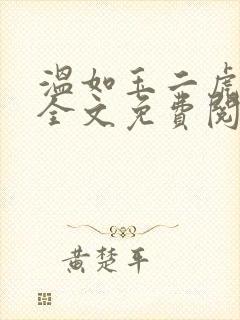 温如玉二虎
全文免费阅
黄楚平